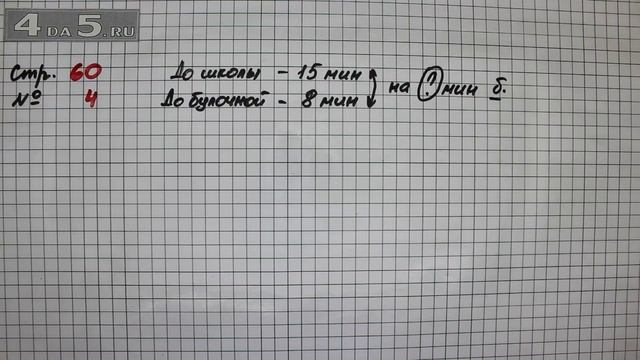 4 DA 5.RU
Стр. 60 До школы - 15 мин на ? мин б.
№ 4 До булочной - 8 мин